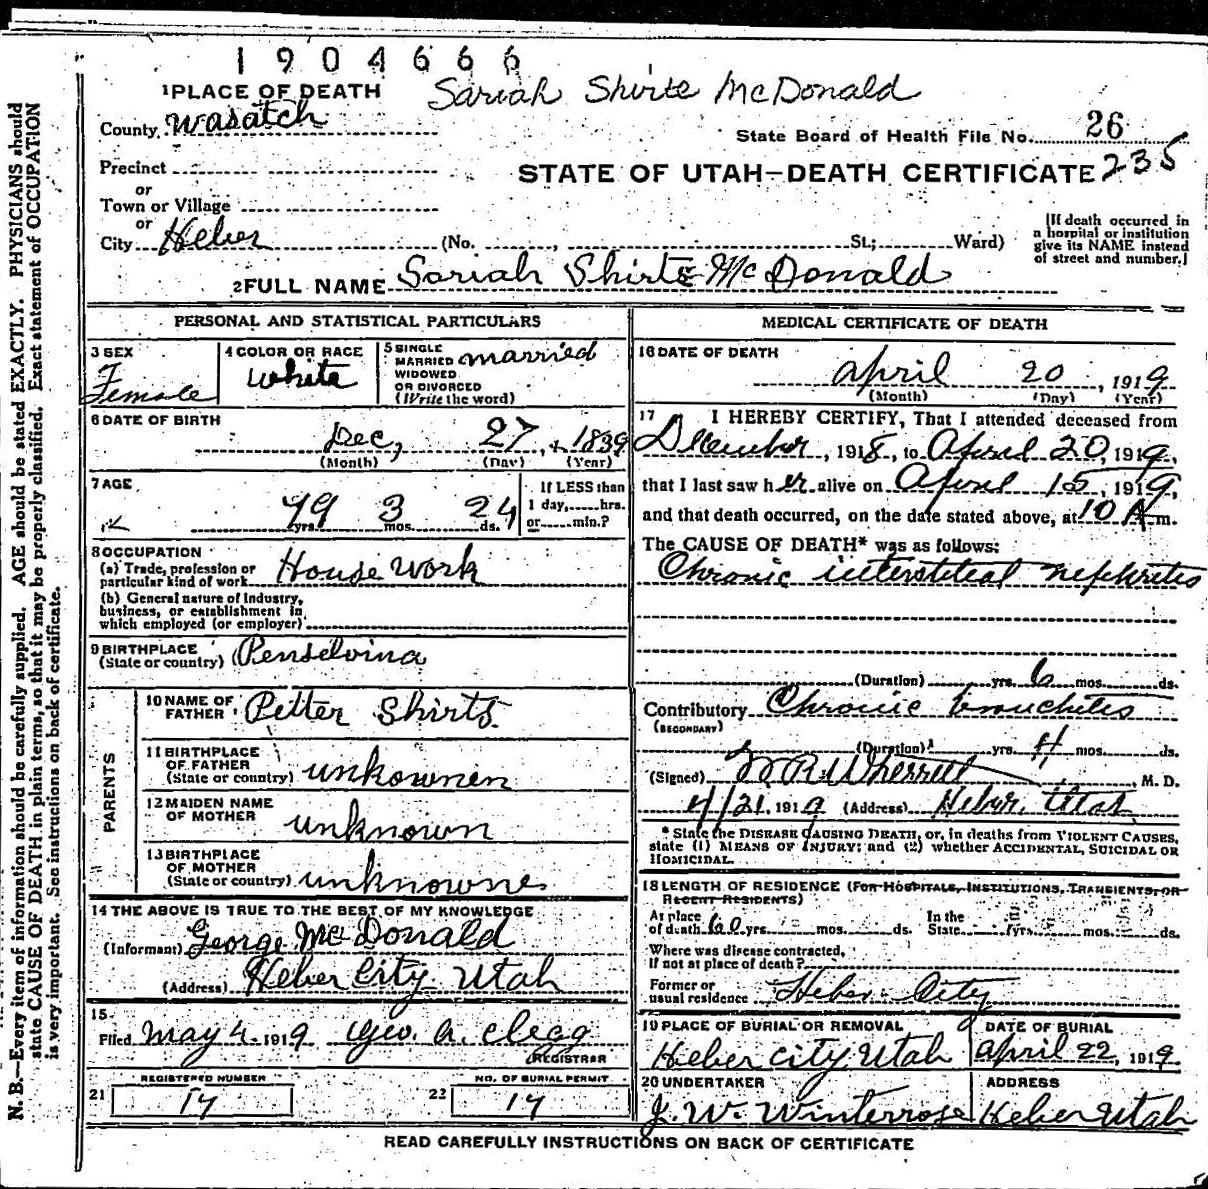 1904666
1 PLACE OF DEATH Sariah Shirts McDonald
County Wasatch
State Board of Health File No. 26
Precinct
or
STATE OF UTAH—DEATH CERTIFICATE 235
Town or Village
or
City Heber (No. , St.; Ward)
[If death occurred in
a hospital or institution
give its NAME instead
of street and number.]
2 FULL NAME Sariah Shirts McDonald
PERSONAL AND STATISTICAL PARTICULARS
3 SEX
Female
4 COLOR OR RACE
White
5 SINGLE
MARRIED
WIDOWED
OR DIVORCED
(Write the word)
married
6 DATE OF BIRTH
Dec, 27, 1839
(Month) (Day) (Year)
7 AGE
79 yrs. 3 mos. 24 ds.
If LESS than
1 day, hrs.
or min.?
8 OCCUPATION
(a) Trade, profession or
particular kind of work House work
(b) General nature of Industry,
business, or establishment in
which employed (or employer)
9 BIRTHPLACE
(State or country) Penselvina
PARENTS
10 NAME OF
FATHER Petter Shirts
11 BIRTHPLACE
OF FATHER
(State or country) unkownen
12 MAIDEN NAME
OF MOTHER unknown
13 BIRTHPLACE
OF MOTHER
(State or country) unknowne
14 THE ABOVE IS TRUE TO THE BEST OF MY KNOWLEDGE
(Informant) George McDonald
(Address) Heber City Utah
15
Filed May 4 1919 Geo. A. Clegg
REGISTRAR
REGISTERED NUMBER
21 17
NO. OF BURIAL PERMIT
22 17
MEDICAL CERTIFICATE OF DEATH
16 DATE OF DEATH
April 20, 1919
(Month) (Day) (Year)
17 I HEREBY CERTIFY, That I attended deceased from
December, 1918, to April 20, 1919,
that I last saw her alive on April 15, 1919,
and that death occurred, on the date stated above, at 10 A m.
The CAUSE OF DEATH* was as follows:
Chronic interstitial nephrites
(Duration) yrs. 6 mos. ds.
Contributory Chronic bronchites
(SECONDARY)
(Duration) yrs. 4 mos. ds.
(Signed) W R Wherritt M. D.
4/21 1919 (Address) Heber, Utah
* State the DISEASE CAUSING DEATH, or, in deaths from VIOLENT CAUSES,
state (1) MEANS OF INJURY; and (2) whether ACCIDENTAL, SUICIDAL OR
HOMICIDAL.
18 LENGTH OF RESIDENCE (FOR HOSPITALS, INSTITUTIONS, TRANSIENTS, OR
RECENT RESIDENTS)
At place
of death 60 yrs. mos. ds.
In the
State yrs. mos. ds.
Where was disease contracted,
If not at place of death?
Former or
usual residence Heber City
19 PLACE OF BURIAL OR REMOVAL
Heber City, Utah
DATE OF BURIAL
April 22, 1919
20 UNDERTAKER
J. W. Winterrose
ADDRESS
Heber Utah
READ CAREFULLY INSTRUCTIONS ON BACK OF CERTIFICATE
N. B.—Every item of information should be carefully supplied. AGE should be stated EXACTLY. PHYSICIANS should
state CAUSE OF DEATH in plain terms, so that it may be properly classified. Exact statement of OCCUPATION
is very important. See instructions on back of certificate.